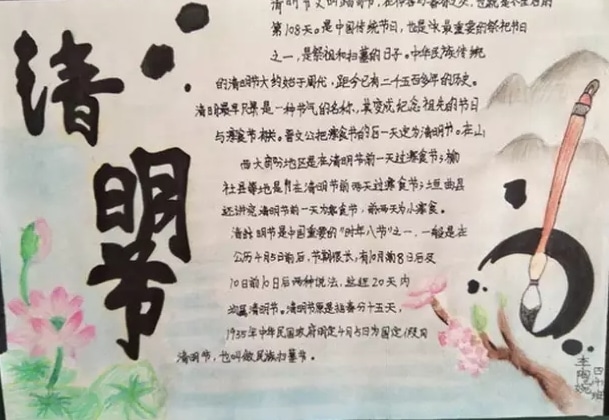 清明节
清明节又叫踏青节,在仲春与暮春之交,也就是冬至后的
第108天。是中国传统节日,也是最重要的祭祀节日
之一,是祭祖和扫墓的日子。中华民族传统
的清明节大约始于周代,距今已有二千五百多年的历史。
清明最早只是一种节气的名称,其变成纪念祖先的节日
与寒食节相关。晋文公把寒食节的后一天定为清明节。在山
西大部分地区是在清明节前一天过寒食节;榆
社县等地是在清明节前两天过寒食节;垣曲县
还讲究清明节前一天为寒食节,前两天为小寒食。
清明节是中国重要的“时年八节”之一,一般是在
公历4月5日前后,节期很长,有10日前8日后及
10日前10日后两种说法,这近20天内
均属清明节。清明节原是指春分十五天,
1935年中华民国政府明定4月5日为国定假日
清明节,也叫做民族扫墓节。